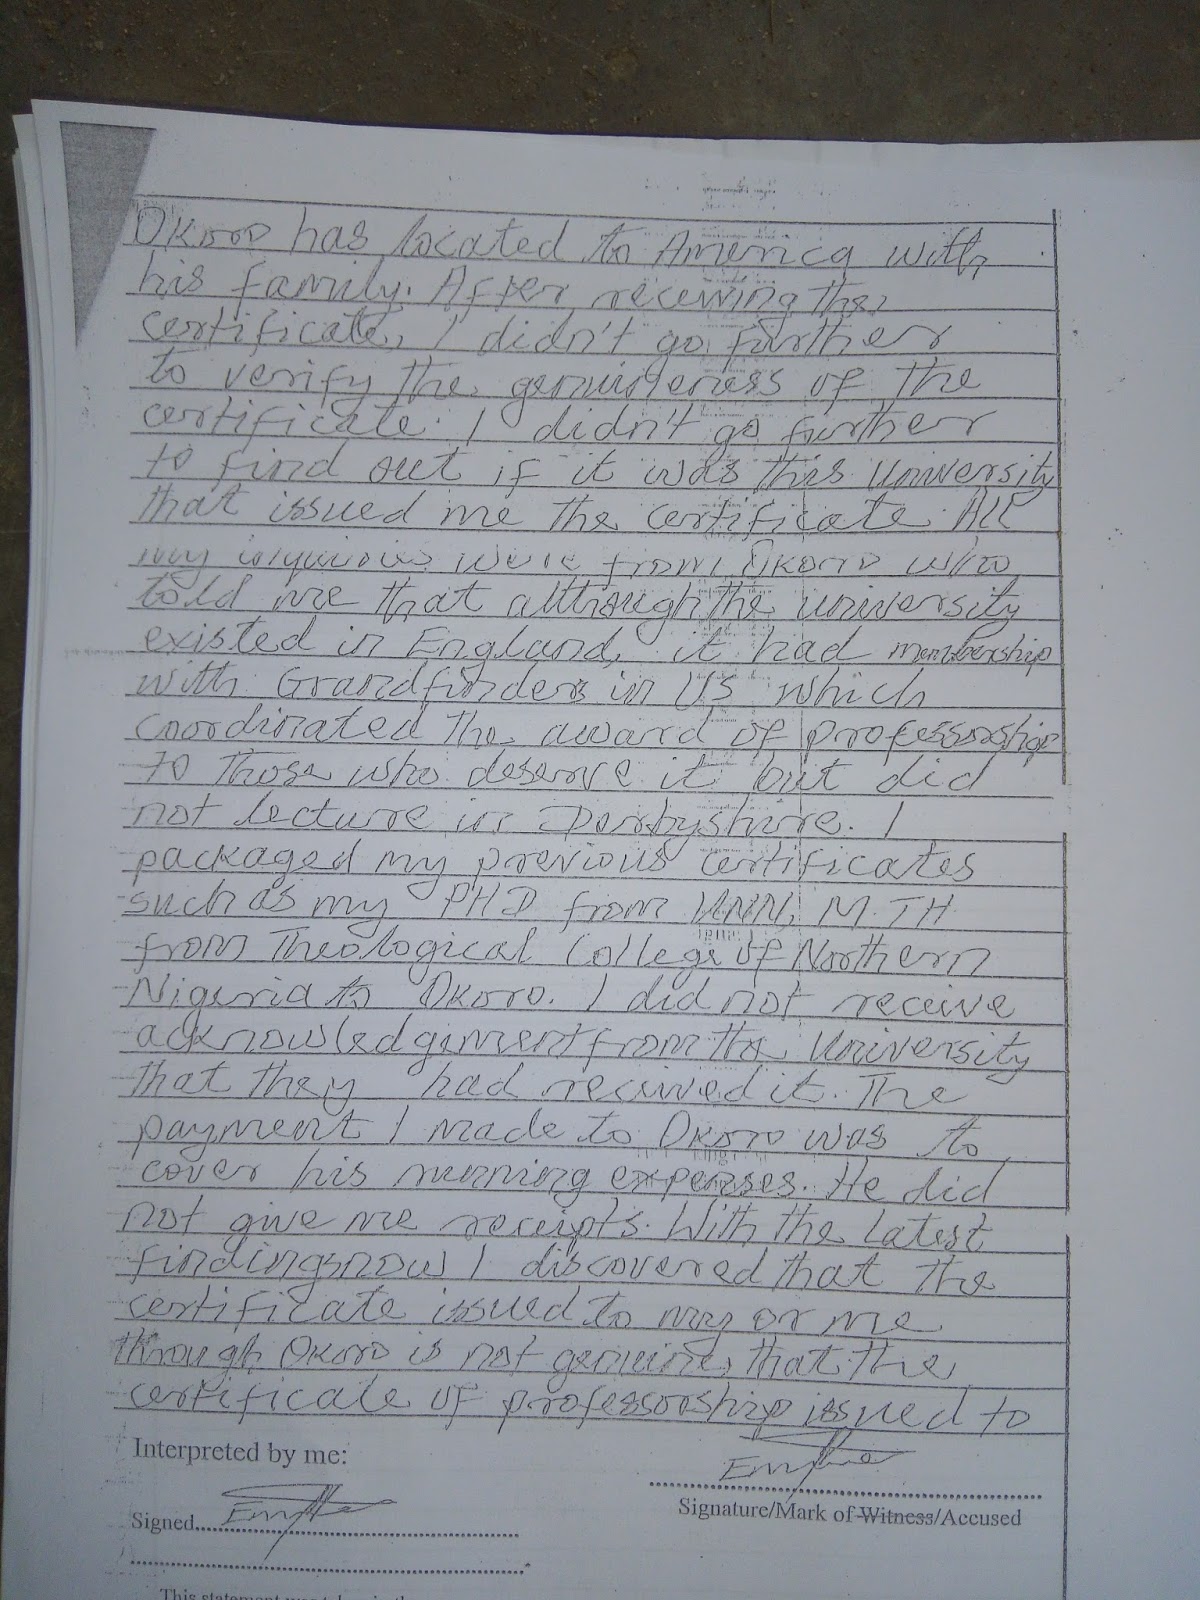 Okoro has located to America with
his family. After receiving the
certificate, I didn't go further
to verify the genuineness of the
certificate. I didn't go further
to find out if it was this University
that issued me the certificate. All
my inquiries were from Okoro who
told me that although the university
existed in England, it had membership
with Grandfinders in US which
coordinated the award of professorship
to those who deserve it but did
not lecture in Derbyshire. I
packaged my previous certificates
such as my PHD from UNN, M.TH
from Theological College of Northern
Nigeria to Okoro. I did not receive
acknowledgement from the University
that they had received it. The
payment I made to Okoro was to
cover his running expenses. He did
not give me receipts. With the latest
findings now I discovered that the
certificate issued to my or me
through Okoro is not genuine, that the
certificate of professorship issued to
Interpreted by me:
Signed
Signature/Mark of Witness/Accused
This statement was taken in the